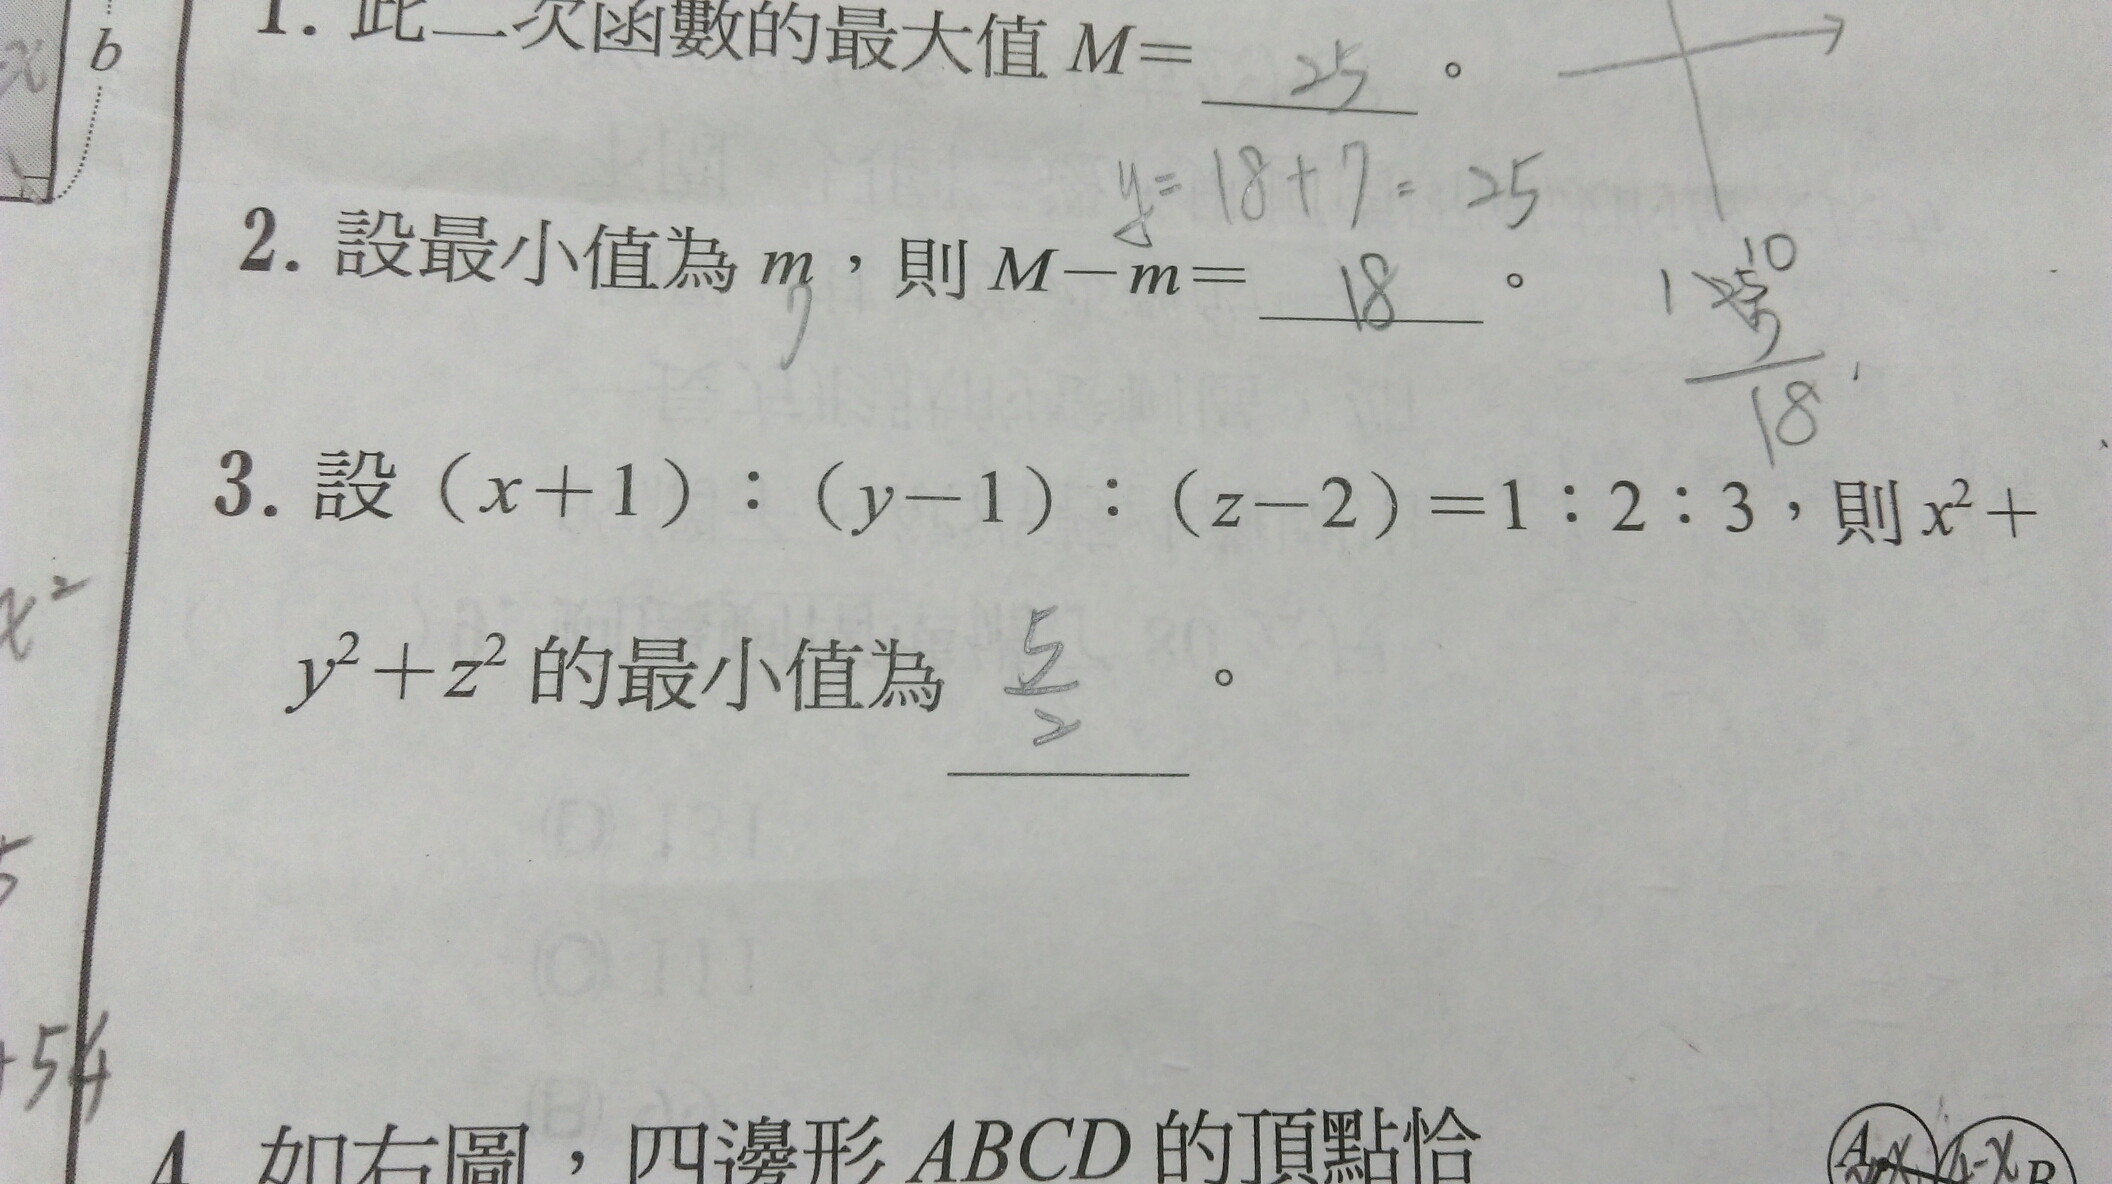 b
x
1. 此二次函數的最大值 M= 25 。
y= 18+7= 25
2. 設最小值為 m，則 M－m= 18 。
7
10
18
3. 設（x＋1）：（y－1）：（z－2）＝1：2：3，則 x²＋
y²＋z² 的最小值為 5/2 。
x²
5
+54
4. 如右圖，四邊形 ABCD 的頂點恰
A 4-x B